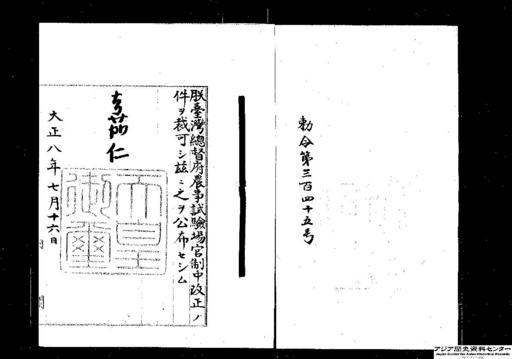 勅令第三百四十五号
朕臺灣總督府農事試驗場官制中改正ノ
件ヲ裁可シ茲ニ之ヲ公布セシム
嘉仁
天皇
御璽
大正八年七月十六日
アジア歴史資料センター
Japan Center for Asian Historical Records